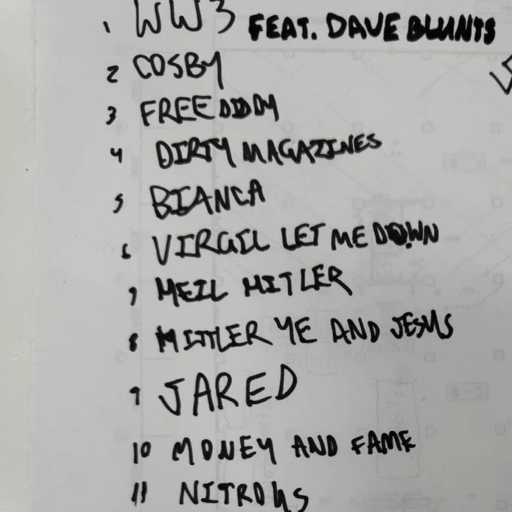 1 WW3 FEAT. DAVE BLUNTS
2 COSBY
3 FREE DIDDY
4 DIRTY MAGAZINES
5 BIANCA
6 VIRGIL LET ME DOWN
7 HEIL HITLER
8 HITLER YE AND JESUS
9 JARED
10 MONEY AND FAME
11 NITROUS